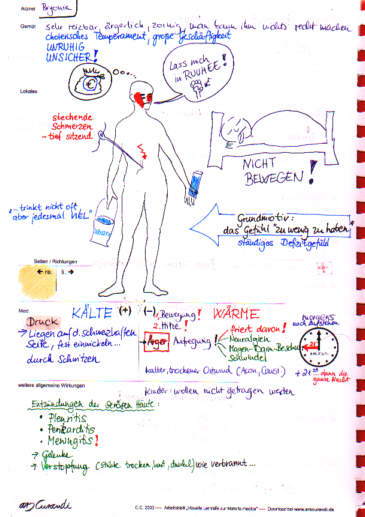 Name: Bryonia
Gemüt: sehr reizbar, ärgerlich, zornig, man kann ihm nichts recht machen
cholerisches Temperament, große Geschäftigkeit
UNRUHIG
UNSICHER!
Lass mich
in RUUHEE!
Lokales
stechende
Schmerzen
- tief sitzend
NICHT
BEWEGEN!
"- trinkt nicht oft,
aber jedesmal VIEL"
Grundmotiv:
das Gefühl "zu wenig zu haben"
ständiges Defizitgefühl
Seiten / Richtungen
← re. li. →
Mod.
KÄLTE (+) (-) WÄRME
Druck
1. Bewegung!
2. Hitze!
→ Liegen auf d. schmerzhaften
Seite, fest einwickeln...
durch Schwitzen
Ärger Aufregung!
friert davon!
→ Neuralgien
→ Magen-Darm-Beschw.
→ Schwindel
morgens
nach Aufstehen
kalter, trockener Ostwind (Acon., Caust.)
+ 21 h
weitere allgemeine Wirkungen
Kinder: wollen nicht getragen werden
Entzündungen der serösen Häute:
• Pleuritis
• Pericarditis
• Meningitis!
→ Gelenke
→ Verstopfung (Stühle trocken, hart, dunkel) wie verbrannt...
ars Curandi